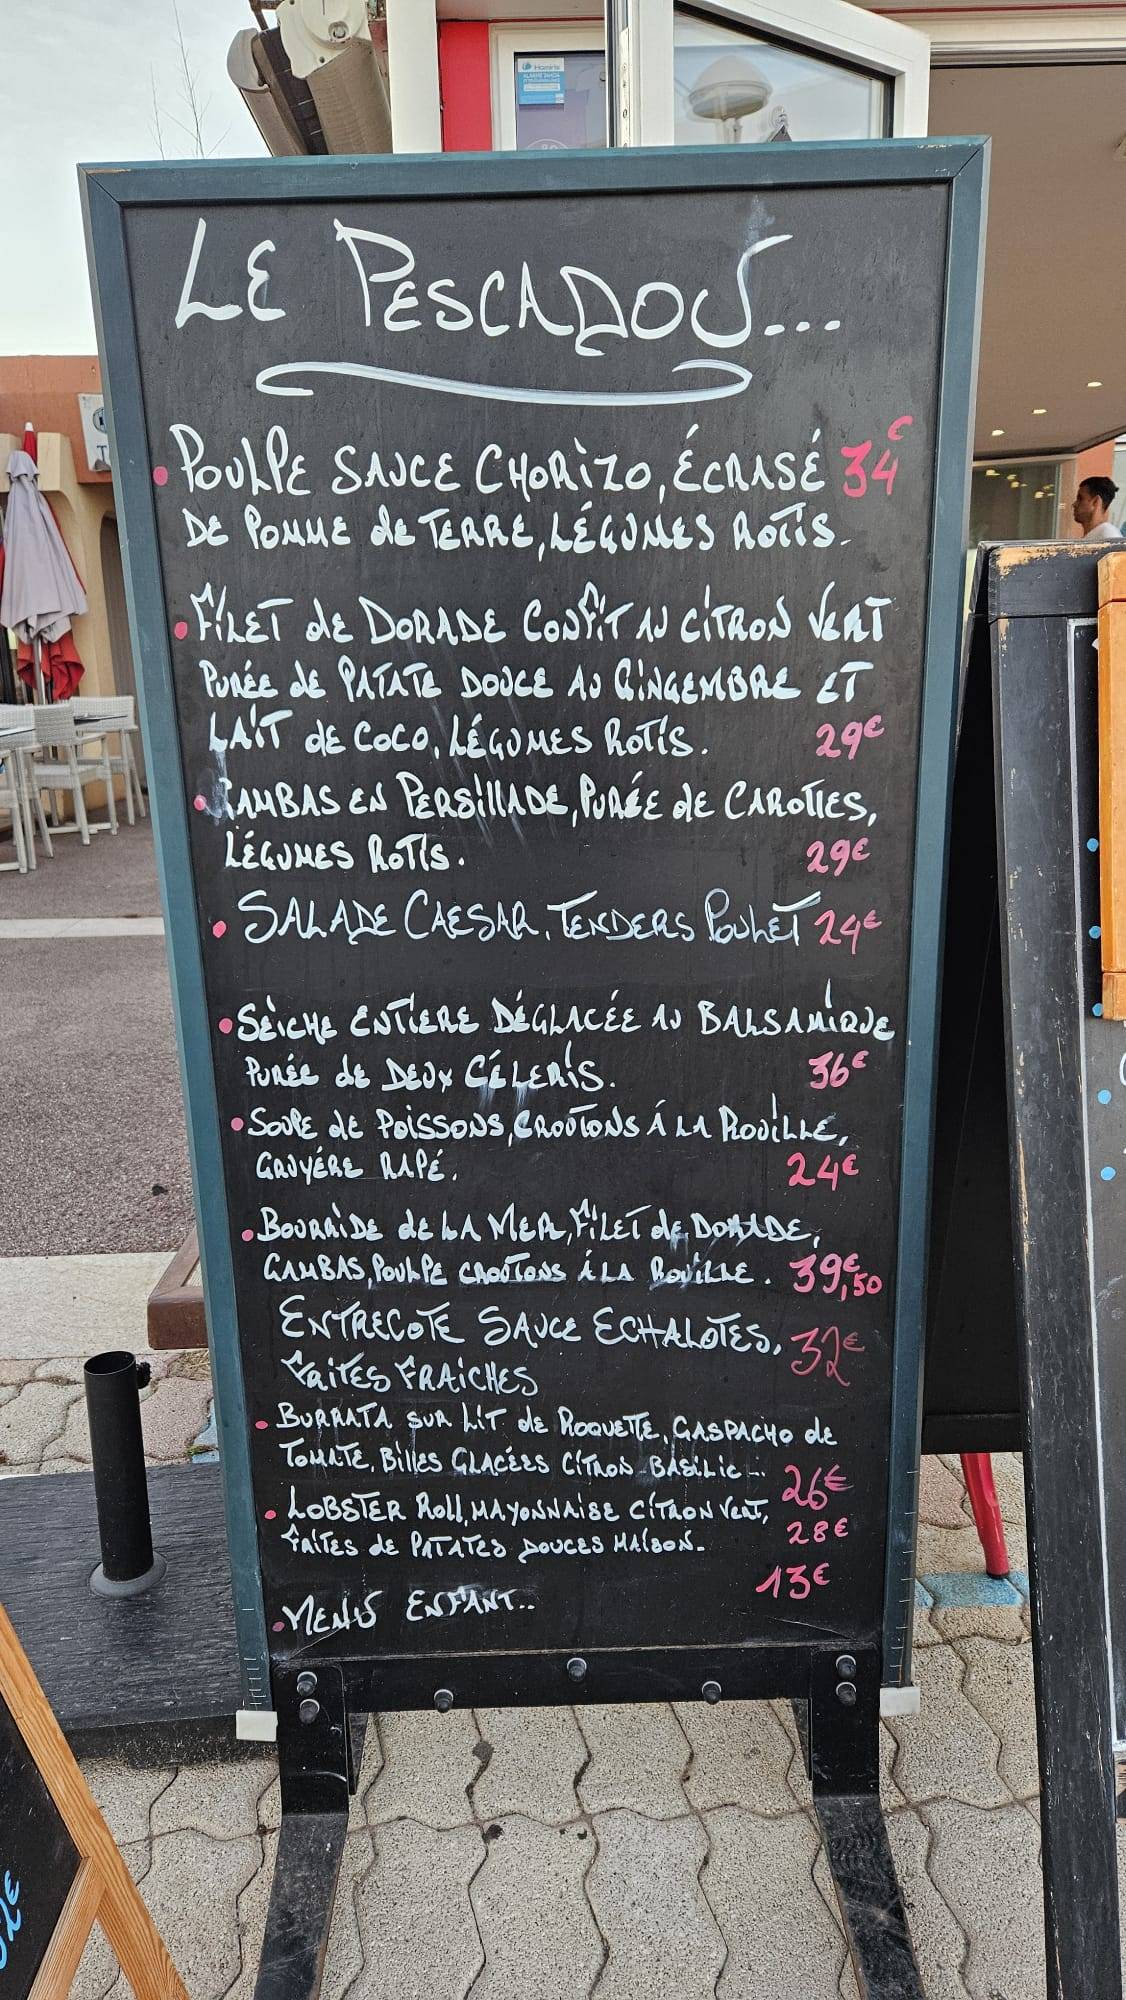 Homiris
LE PESCADOU...
• POULPE SAUCE CHORIZO, ÉCRASÉ 34€
DE POMME de TERRE, LÉGUMES ROTIS.
• FILET de DORADE CONFIT AU CITRON VERT
PURÉE de PATATE DOUCE AU GINGEMBRE ET
LAIT de COCO, LÉGUMES ROTIS. 29€
• GAMBAS EN PERSILLADE, PURÉE de CAROTTES,
LÉGUMES ROTIS. 29€
• SALADE CAESAR, TENDERS POULET 24€
• SEICHE ENTIERE DÉGLACÉE AU BALSAMIQUE
PURÉE de DEUX CÉLERIS. 36€
• SOUPE de POISSONS, CROUTONS Á LA ROUILLE,
GRUYÉRE RAPÉ. 24€
• BOURRIDE de LA MER, FILET de DORADE,
GAMBAS, POULPE CROUTONS Á LA ROUILLE. 39€,50
ENTRECOTE SAUCE ECHALOTES, 32€
FRITES FRAICHES
• BURRATA SUR LIT de ROQUETTE, GASPACHO de
TOMATE, BILLES GLACÉES CITRON-BASILIC... 26€
• LOBSTER Roll, MAYONNAISE CITRON VERT,
FRITES de PATATES DOUCES MAISON. 28€
• MENU ENFANT.. 13€